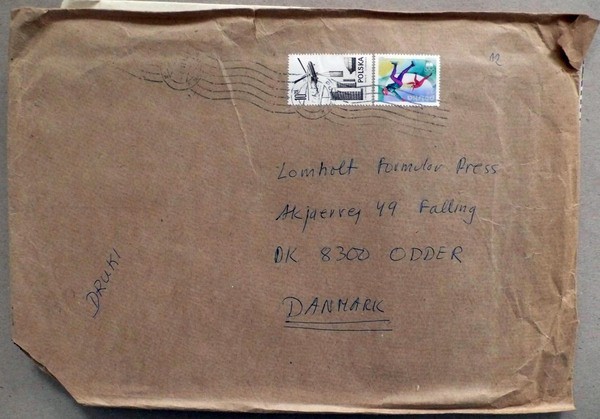 POLSKA
Lomholt Formular Press
Akjaervej 49 Falling
DK 8300 ODDER
DANMARK
DRUKI